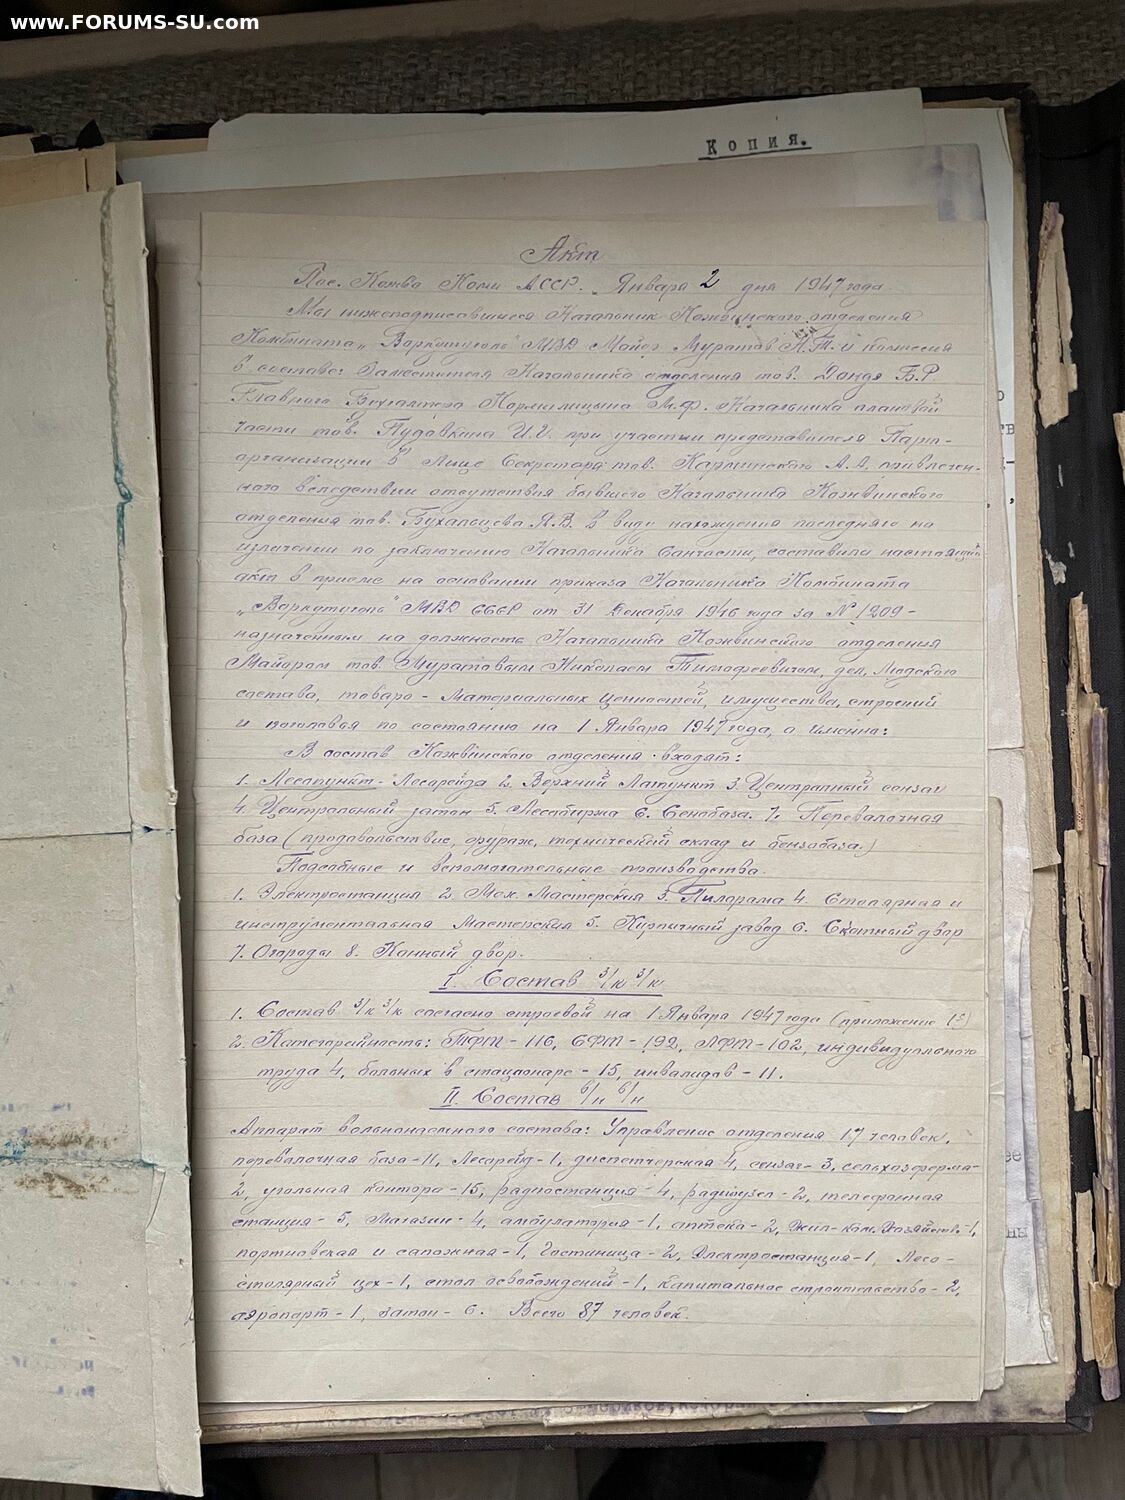 www.FORUMS-SU.com
Копия.
Акт
Пос. Кожва Коми АССР. Января 2 дня 1947 года
Мы нижеподписавшиеся Начальник Кожвинского отделения
Комбината „Воркутуголь" МВД Майор Муратов Н.Т. и комиссия
в составе: Заместителя Начальника отделения тов. Дондя Б.Р
Главного Бухгалтера Кормилицына М.Ф. Начальника плановой
части тов. Пудовкина И.И. при участии представителя Парт-
организации в лице Секретаря тов. Карпинского А.А. привлечен-
ного вследствии отсутствия бывшего Начальника Кожвинского
отделения тов. Бухальцева Я.В. в виду нахождения последнего на
излечении по заключению Начальника Санчасти, составили настоящий
акт в приеме на основании приказа Начальника Комбината
„Воркутуголь" МВД СССР от 31 Декабря 1946 года за № 1209-
назначенным на должность Начальника Кожвинского отделения
Майором тов. Муратовым Николаем Тимофеевичем, дел, людского
состава, товаро-материальных ценностей, имущества, строений
и поголовья по состоянию на 1 Января 1947 года, а именно:
В состав Кожвинского отделения входят:
1. Лесопункт - Лесорейда 2. Верхний Лагпункт 3. Центральный
4. Центральный затон 5. Лесобиржа 6. Сенобаза. 7. Перевалочная
база (продовольствие, фураж, технический склад и бензобаза.)
Подсобные и вспомогательные производства.
1. Электростанция 2. Мех. Мастерская 3. Пилорама 4. Столярная и
инструментальная Мастерская 5. Кирпичный завод 6. Скотный двор
7. Огороды 8. Конный двор.
I. Состав з/к з/к
1. Состав з/к з/к согласно строевой на 1 Января 1947 года (приложение
2. Категорийность: ТФТ - 116, СФТ - 192, ЛФТ - 102, индивидуального
труда 4, больных в стационаре - 15, инвалидов - 11.
II. Состав в/н в/н
Аппарат вольнонаемного состава: Управление отделения 17 человек,
перевалочная база - 11, Лесорейд - 1, диспетчерская 4, - 3, сельхозферма -
2, угольная контора - 15, радиостанция - 4, радиоузел - 2, телефонная
станция - 5, Магазин - 4, амбулатория - 1, аптека - 2, Жил-ком. - 1,
портновская и сапожная - 1, Гостиница - 2, Электростанция - 1, Лесо -
столярный цех - 1, стол освобождений - 1, капитальное строительство - 2,
аэропорт - 1, затон - 6. Всего 87 человек.